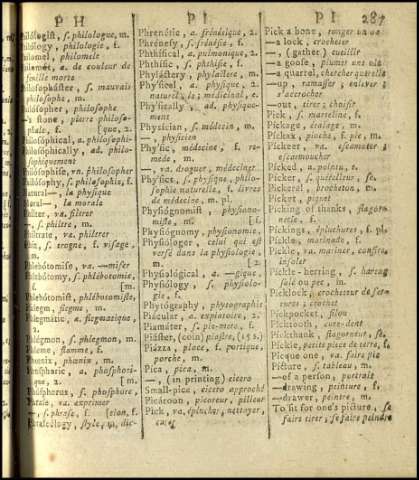 P H
P I
P I 287
Philólogist, s. philologue, m.
Philólogy, philologie, f.
Philomel, philomele
, a. de couleur de
feuille morte
Philosophaster, s. mauvais
philosophe, m.
Philosopher, philosophe
—'s stone, pierre philoso-
phale, f. [que, 2.
Philosóphical, a. philosophi-
Philosophically, ad. philo-
sophiquement
Philósophise, vn. philosopher
Philósophy, s. philosophie, f.
Natural—, la physique
Moral—, la morale
Philter, va. filtrer
—, s. philtre, m.
, va. philtrer
Phiz, s. trogne, f. visage,
m.
Phlebótomise, va. —miser
Phlebótomy, s. phlébotomie,
f. [m.
Phlebótomist, phlébotomiste,
Phlegm, flegme, m.
Phlegmátic, a. flegmatique
2.
Phlégmon, s. phlegmon, m.
Phleme, flamme, f.
Phœnix, phœnix, m.
Phosphoric, a. phosphori-
que, 2. [m.
Phosphorus, s. phosphore,
Phrase, va. exprimer
—, s. phrase, f. [tion, f.
Phraseólogy, style, m. dic-
Phrenétic, a. frénétique, 2.
Phrénesy, s. frénésie, f.
Phthisical, a. pulmonique, 2.
Phthisic, s. phthisie, f.
Phyláctery, phylactere, m.
Physical, a. physique, 2.
naturel, le; médicinal, e.
Physically, ad. physique-
ment
Physician, s. médecin, m.
physicien
Physic, médecine, f. re-
mede, m.
—, va. droguer, médeciner
Physics, s. physique, philo-
sophie naturelle, f. livres
de médecine, m. pl.
Physiógnomist, physiono-
miste, m. [f.
Physiógnomy, physionomie,
Physiologer, celui qui est
versé dans la physiologie,
m. [2.
Physiológical, a. —gique,
Physiólogy, s. physiolo-
gie, f.
Phytógraphy, phytographie
Piácular, a. expiatoire, 2.
Piamáter, s. pie-mere, f.
Piáster, (coin) piastre,
Piázza, place, f. portique,
porche, m.
Pica, pica, m.
—, (in printing) cicero
Small-pica, cicero approché
Picároon, picoreur, pilleur
Pick, va. éplucher, nettoyer,
curer
Pick a bone, ronger un os
—a lock, crocheter
—, (gather) cueillir
—a goose, plumer une oie
—a quarrel, chercher querelle
—up, ramasser; enlever
d'accroc
—out, tirer; choisir
Pick, s. marteline, f.
Pickage, étalage, m.
Pickax, pioche, f. pic, m.
Pickeer, va. escamoter;
escarmoucher
Picked, a. pointu, e.
Picker, s. querelleur, se.
Pickerel, brocheton, m.
Picket, piquet
Picking of thanks, flagor-
nerie, f.
Pickings, épluchures, f. pl.
Pickle, marinade, f.
Pickle, va. mariner, confire,
saler
Pickle-herring, s. hareng
salé ou pec, m.
Picklock, crocheteur de ser-
rures; crochet
Pickpocket, filou
Picktooth, cure-dent
Pickthank, flagorneur, se.
Pickle, petite piece de terre, f.
Picque one, va. faire pic
Picture, s. tableau, m.
—of a person, portrait
—drawing, peinture, f.
—drawer, peintre, m.
To sit for one's picture, se
faire tirer, se faire peindre